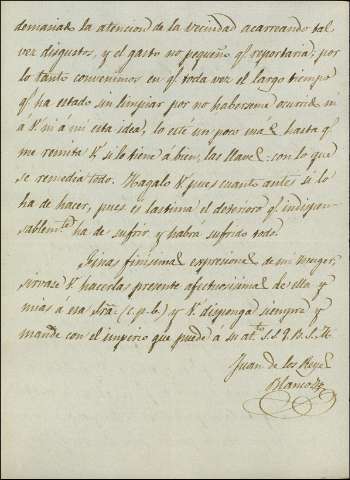 demasiado la atencion de la vecindad acarreando tal
vez disgustos, y el gasto no pequeño qᵉ reportaria; por
lo tanto convenimos en qᵉ toda vez el largo tiempo
qᵉ ha estado sin limpiar por no habersenos ocurrido ni
a V. ni a mi esta idea, lo esté un poco más hasta qᵉ
me remita V. si lo tiene á bien, las llaves con lo que
se remedia todo. Hagalo V. pues cuanto antes si lo
ha de hacer, pues es lastima el deterioro qᵉ indispen-
sablemᵗᵉ ha de sufrir y habrá sufrido todo.
finas expresiones de mi muger,
sirvase V. hacerlas presente de ella y
mias á esa Sra. (c. p. b.) y V. disponga siempre y
mande con el imperio que puede á su atᵒ. S. S. Q. B. S. M.
Juan de los Reyes
Blanco